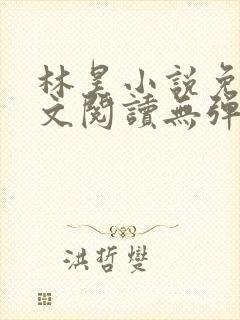 林昊小說免
文閱讀無彈
洪哲燮